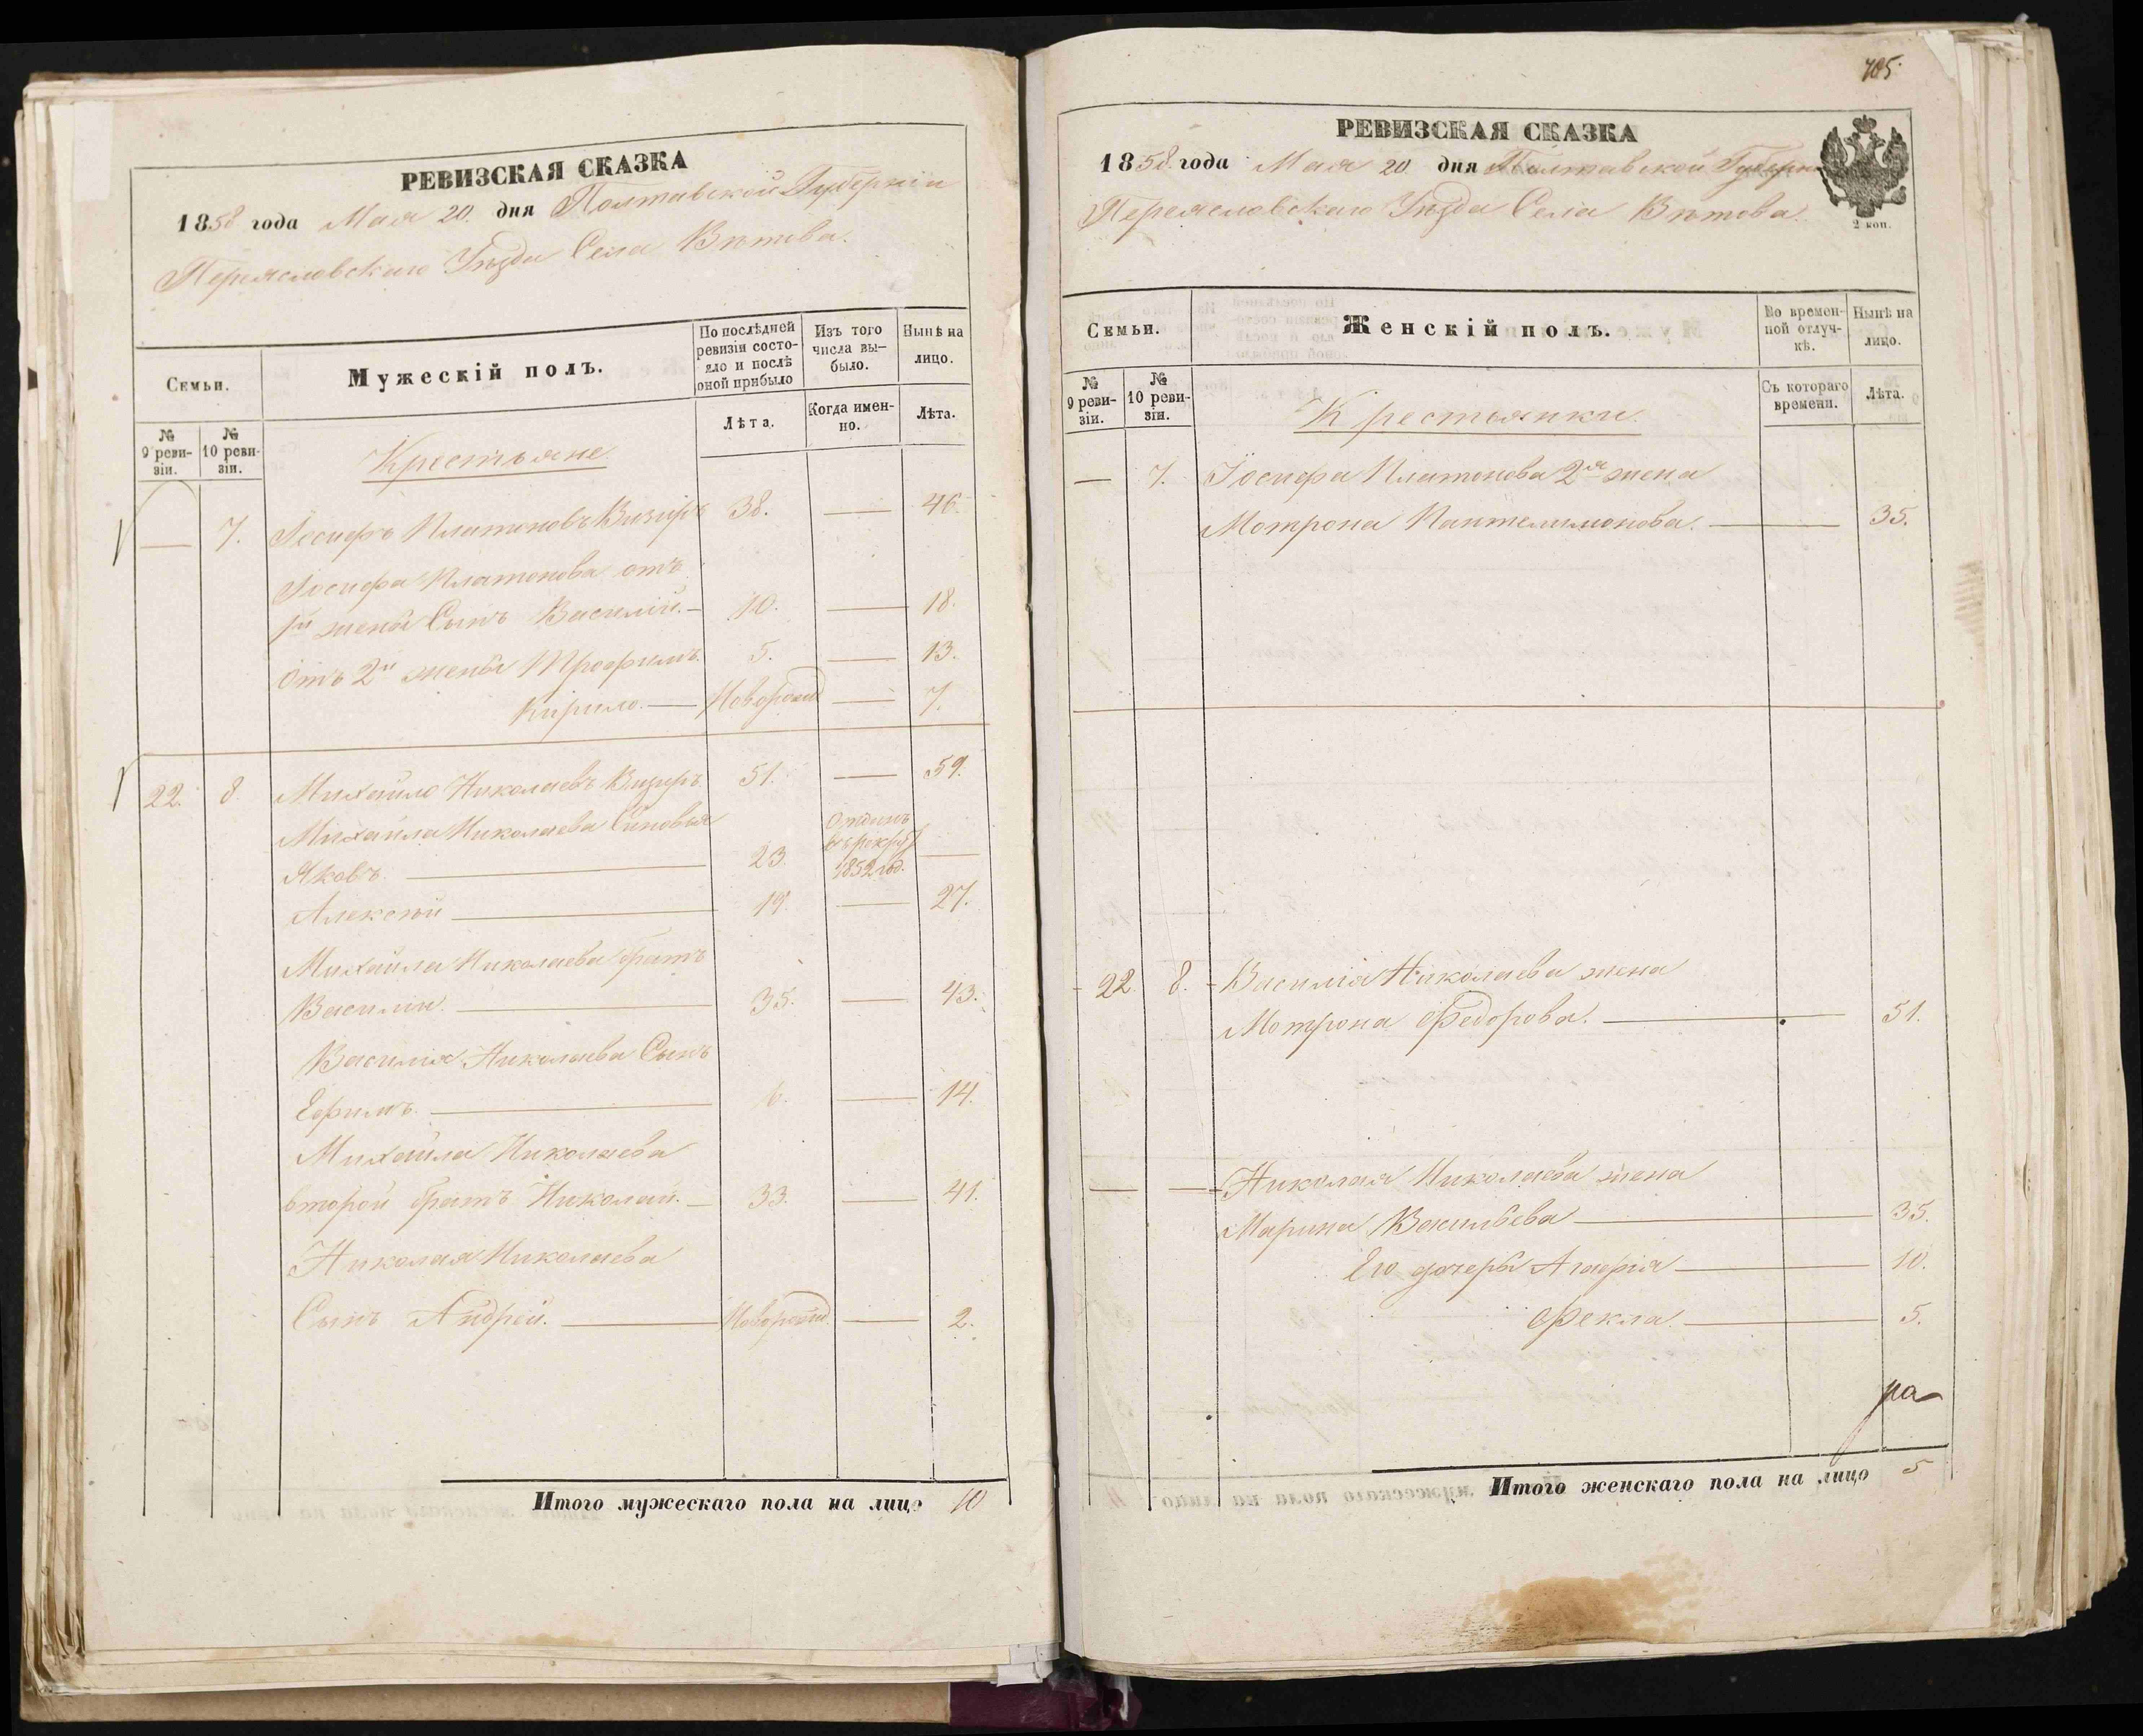 РЕВИЗСКАЯ СКАЗКА
1858 года Мая 20 дня Полтавской Губерніи
Переяславскаго Уѣзда Села
Семьи.
Мужескій полъ.
По послѣдней ревизіи состояло и послѣ оной прибыло
Изъ того числа выбыло.
Нынѣ на лицо.
№ 9 ревизіи.
№ 10 ревизіи.
Лѣта.
Когда именно.
Лѣта.
Крестьяне
— 7. Іосифъ Платоновъ Визиръ 38. — 46.
Іосифа Платонова отъ
1й жены Сынъ Василій. — 10. — 18.
Отъ 2й жены Трофимъ. 5. — 13.
Кирило. — Новорожд — 7.
22. 8. Михайло Николаевъ Визиръ 51. — 59.
Михайла Николаева Сыновья
Яковъ. — 23. Отданъ въ рекруты 1852 год. —
Алексѣй — 19. — 27.
Михайла Николаева братъ
Василій. — 35. — 43.
Василія Николаева Сынъ
Ефимъ. — 6. — 14.
Михайла Николаева
второй братъ Николай. — 33. — 41.
Николая Николаева
Сынъ Андрей. — Новорожд. — 2.
Итого мужескаго пола на лицо 10
705.
РЕВИЗСКАЯ СКАЗКА
1858 года Мая 20 дня Полтавской Губерніи
Переяславскаго Уѣзда Села
2 коп.
Семьи.
Женскій полъ.
Во временной отлучкѣ.
Нынѣ на лицо.
№ 9 ревизіи.
№ 10 ревизіи.
Съ котораго времени.
Лѣта.
Крестьянки.
— 7. Іосифа Платонова 2я жена
Мотрона Пантелимонова. — 35.
22. 8. Василія Николаева жена
Мотрона Федорова. — 51.
— — Николая Николаева жена
Марина Васильева — 35.
Его дочери Агафія — 10.
Фекла. — 5.
ра
Итого женскаго пола на лицо 5